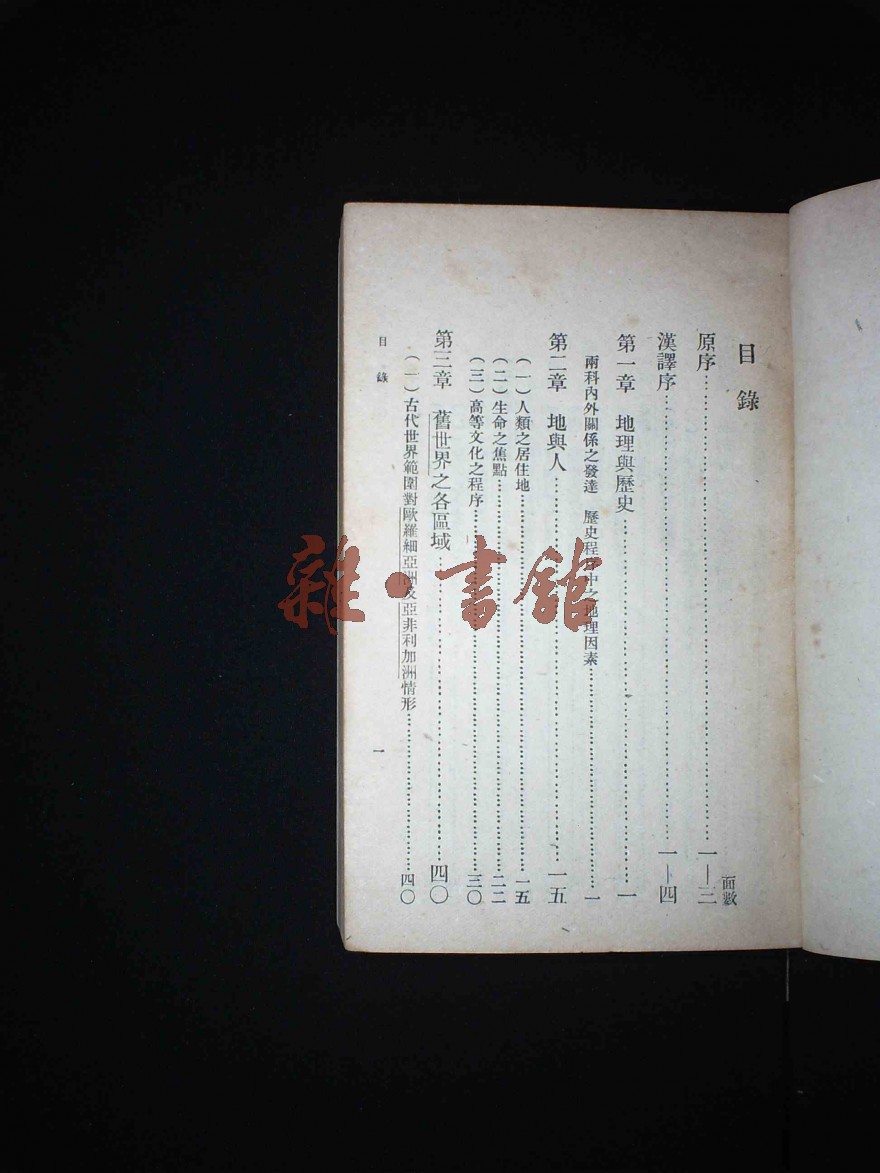 目錄
面數
原序……一—三
漢譯序……一—四
第一章 地理與歷史……一
兩科內外關係之發達 歷史程序中之地理因素……一
第二章 地與人……一五
(一)人類之居住地……一五
(二)生命之焦點……二二
(三)高等文化之程序……三〇
第三章 舊世界之各區域……四〇
(一)古代世界範圍對歐羅細亞洲及亞非利加洲情形……四〇
目錄
一
雜·書館